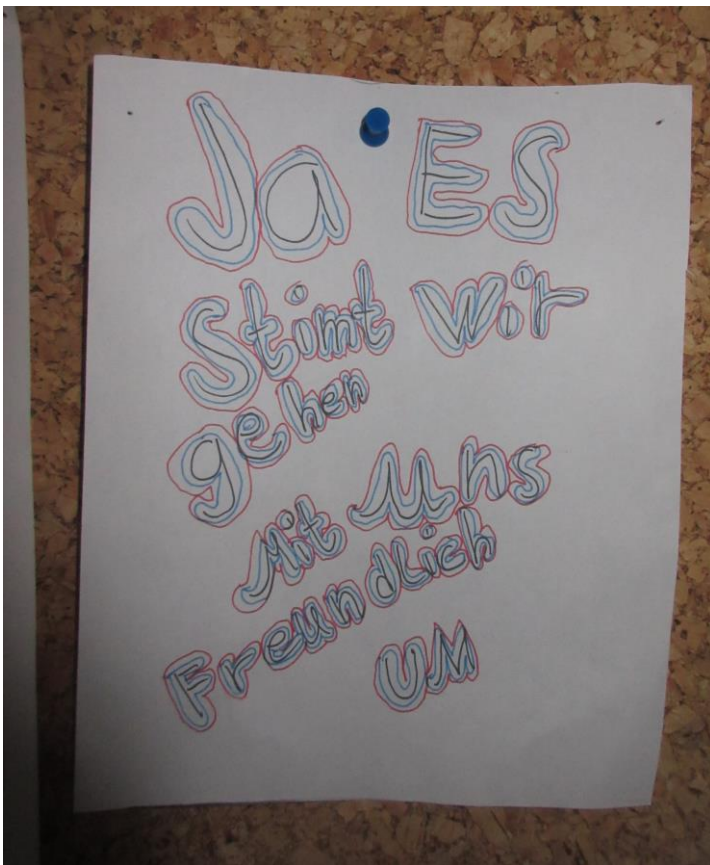 Ja ES
Stimt Wir
gehen
Mit Uns
Freundlich
UM